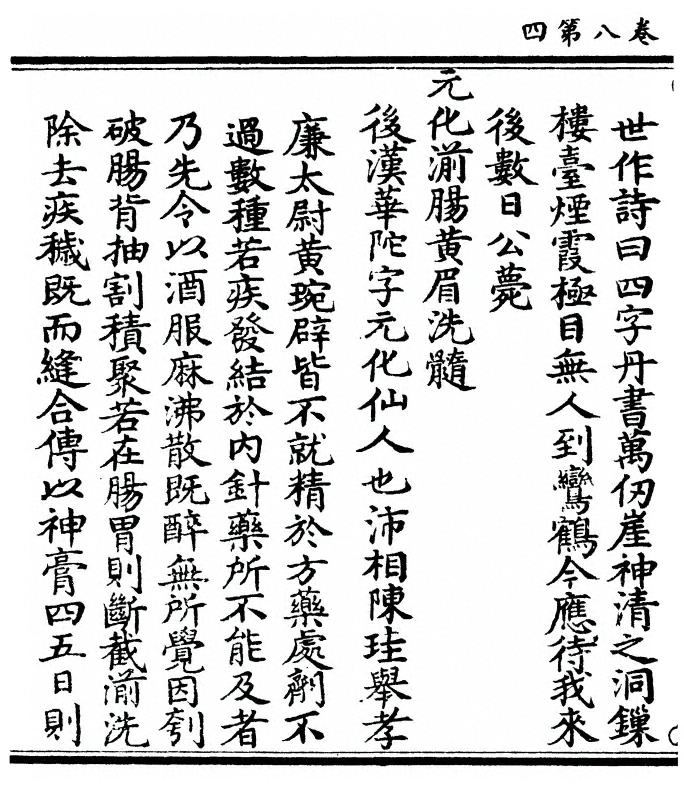 卷八第四
世作詩曰四字丹書萬仞崖神清之洞鏁
樓臺煙霞極目無人到鸞鶴今應待我來
後數日公薨
元化湔腸黃眉洗髓
後漢華陀字元化仙人也沛相陳珪舉孝
廉太尉黃琬辟皆不就精於方藥處劑不
過數種若疾發結於內針藥所不能及者
乃先令以酒服麻沸散既醉無所覺因刳
破腸背抽割積聚若在腸胃則斷截湔洗
除去疾穢既而縫合傅以神膏四五日則